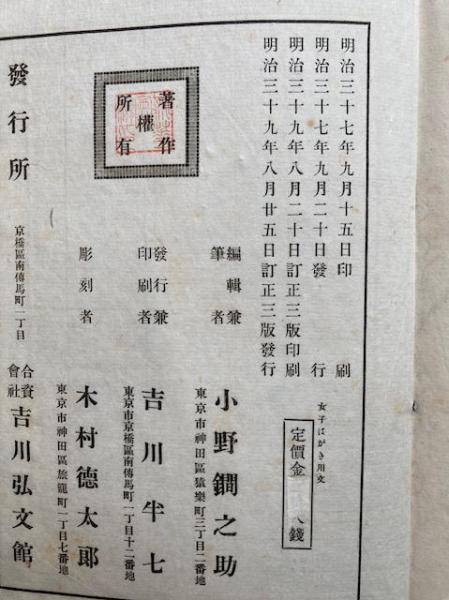 明治三十七年九月十五日印刷
明治三十七年九月二十日發行
明治三十九年八月二十日訂正三版印刷
明治三十九年八月廿五日訂正三版發行
著作
權
所有
女子はがき用文
定價金
八錢
編輯兼
筆者
小野鵞之助
東京市神田區猿樂町三丁目二番地
發行兼
印刷者
吉川半七
東京市京橋區南傳馬町一丁目十二番地
彫刻者
木村德太郎
東京市神田區旅籠町一丁目七番地
發行所
京橋區南傳馬町一丁目
合資
會社
吉川弘文館